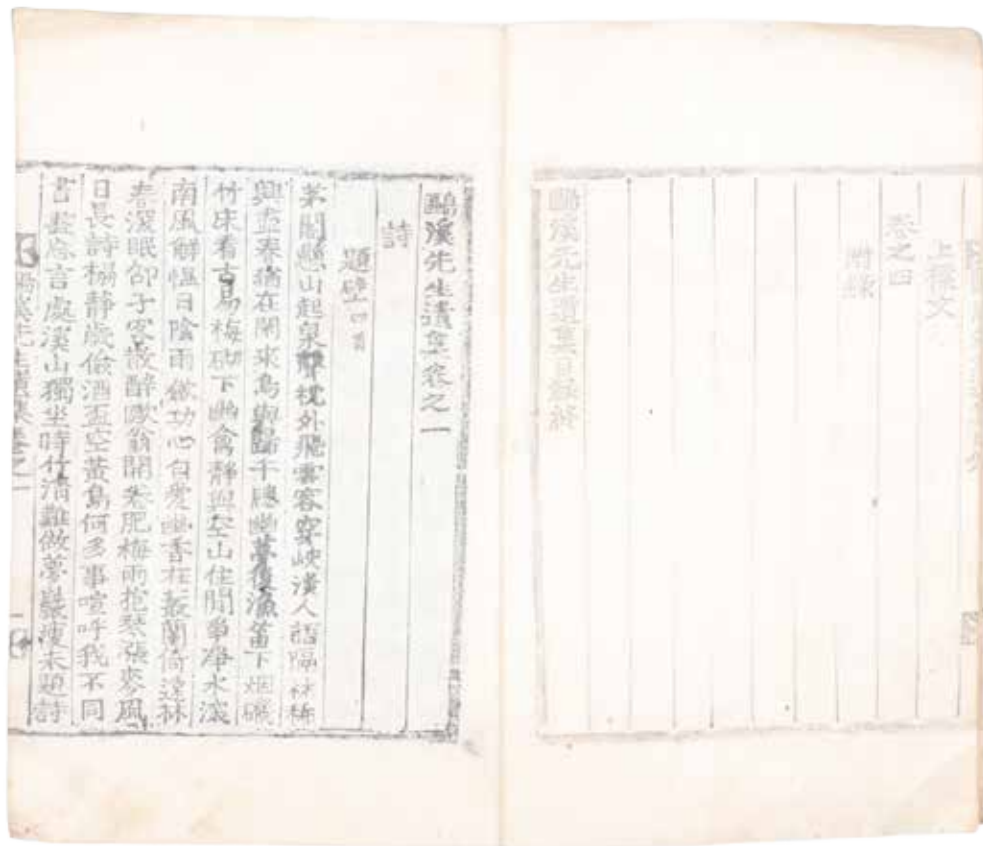 上樑文
卷之四
附錄
鷗溪先生遺集目錄終
鷗溪先生遺集卷之一
詩
題壁四首
茅閣懸山起泉聲枕外飛雲容穿峽人語隔林稀
興盡春猶在閑來鳥與歸午牕幽夢後漁笛下烟磯
竹床看古易梅砌下幽禽靜與空山住閒爭淨水深
南風解慍日陰雨功心自愛幽香在叢蘭倚遠林
春深眠邵子客散醉歐翁開卷肥梅雨抱琴張麥風
日長詩榻靜歲儉酒盃空黃鳥何多事喧呼我不同
書盡忘言處溪山獨坐時竹清難做夢巖瘦未題詩
鷗溪先生遺集卷之一